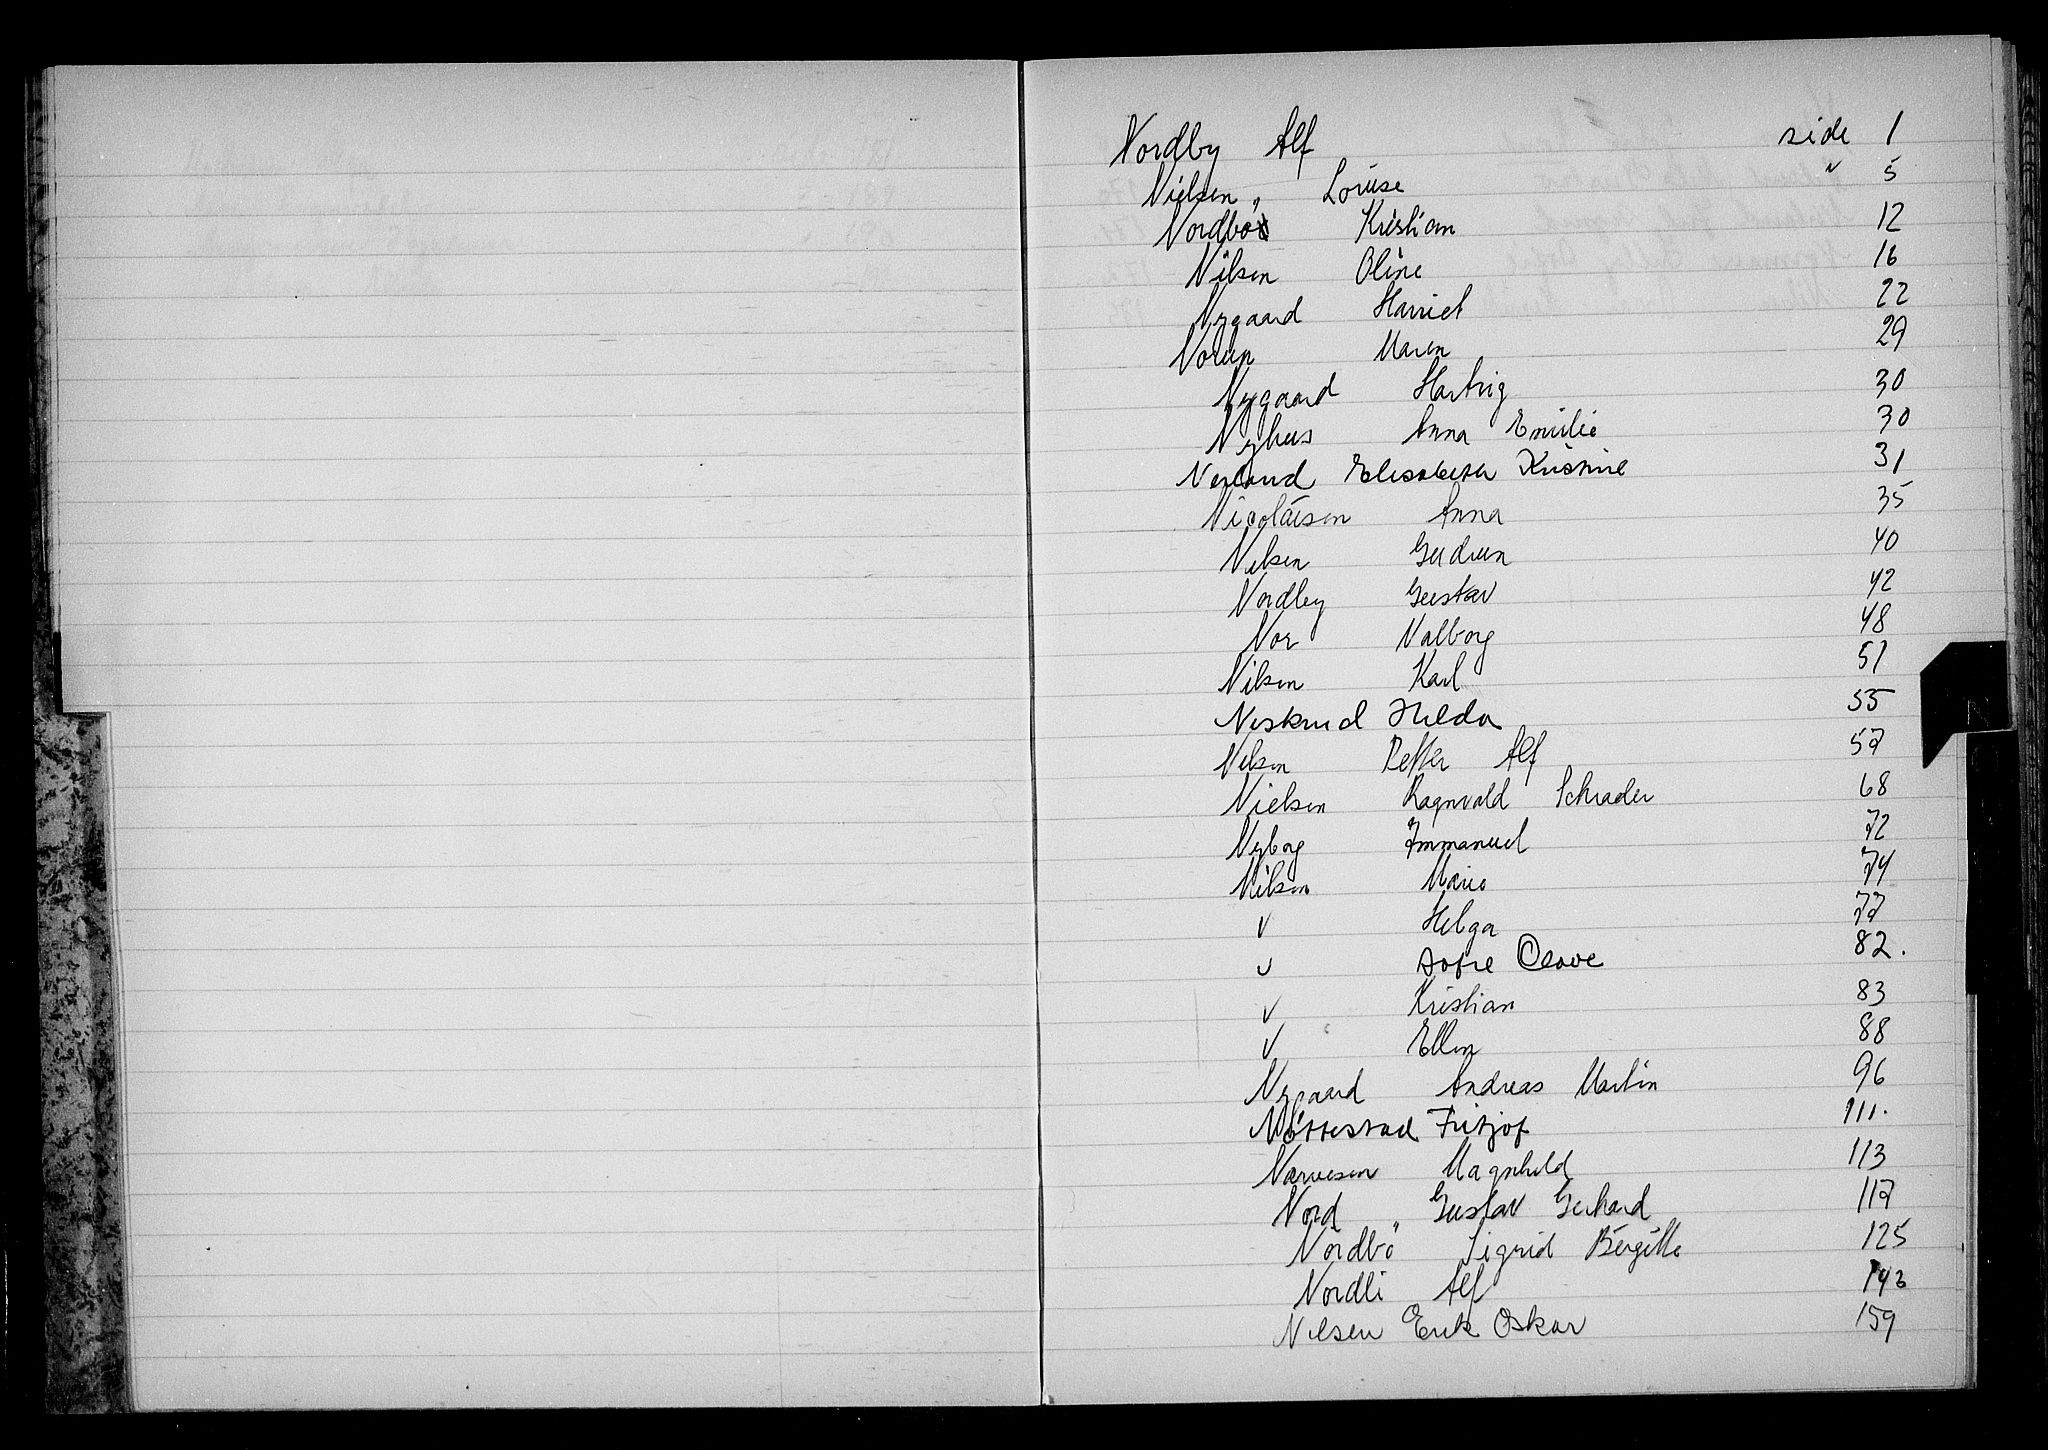 Nordby Alf side 1
Nielsen, Louise " 5
Nordbö Kristian 12
Nilsen Oline 16
Nygaard Harriet 22
Maren 29
Nygaard Hartvig 30
Nyhus Anna Emilie 30
Nerland Elisabeth Kristine 31
Nicolaisen Anna 35
Nilsen Gudrun 40
Nordby Gustav 42
Nor Valborg 48
Nilsen Karl 51
Neskrud Hilda 55
Nilsen Petter Alf 57
Nielsen Ragnvald Schrader 68
Nyborg Immanuel 72
Nilsen Marie 74
v Helga 77
v Sofie Olave 82.
v Kristian 83
v Ellen 88
Nygaard Andreas Martin 96
Nöttestad Fritjof 111.
Narvesen Magnhild 113
Nord, Gustav Gerhard 117
Nordbö Sigrid Bergitte 125
Nordli Alf 143
Nilsen Erik Oskar 159
N